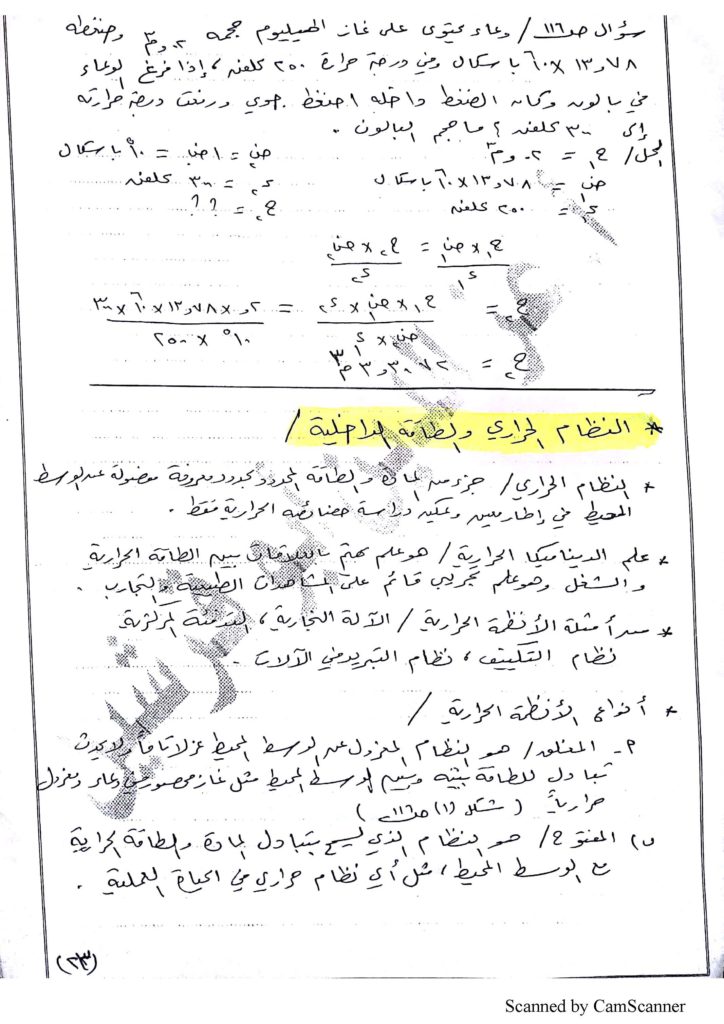 سؤال ص١١٦ / وعاء يحتوي على غاز الهيليوم حجمه ٠,٢ م٣ وضغطه
١٣,٧٨ × ١٠٦ باسكال وفي درجة حرارة ٢٥٠ كلفن ، إذا فرغ الوعاء
في بالون وكان الضغط داخله ١ ضغط جوي ورفعت درجة حرارته
إلى ٣٠٠ كلفن ؟ ما حجم البالون .
الحل / ح١ = ٠,٢ م٣ ض٢ = ١ ض = ١٠٥ باسكال
ض١ = ١٣,٧٨ × ١٠٦ باسكال ء٢ = ٣٠٠ كلفن
ء١ = ٢٥٠ كلفن ح٢ = ؟؟
ح١ × ض١ = ح٢ × ض٢
ء١ ء٢
ح٢ = ح١ × ض١ × ء٢ = ٠,٢ × ١٣,٧٨ × ١٠٦ × ٣٠٠
ض٢ × ء١ ١٠٥ × ٢٥٠
ح٢ = ٣٣,٠٧٢ م٣
* النظام الحراري والطاقة الداخلية /
* النظام الحراري / جزء من المادة والطاقة المحدود بحدود معروفة مفصولة عن الوسط
المحيط في إطار معين ويمكن دراسة خصائصه الحرارية فقط .
* علم الديناميكا الحرارية / هو علم يهتم بالعلاقات بين الطاقة الحرارية
والشغل وهو علم تجريبي قائم على المشاهدات الطبيعية والتجارب .
* من أمثلة الأنظمة الحرارية / الآلة البخارية ، التدفئة المركزية
نظام التكييف ، نظام التبريد في الآلات .
* أنواع الأنظمة الحرارية /
٢- المغلق / هو النظام المعزول عن الوسط المحيط عزلا تاماً ولا يحدث
تبادل للطاقة بينه وبين الوسط المحيط مثل غاز محصور في وعاء ومعزول
حرارياً ( شكل (١) ص١١٦ )
ب) المفتوح / هو النظام الذي يسمح بتبادل المادة والطاقة الحرارية
مع الوسط المحيط ، مثل أي نظام حراري في الحياة العملية .
(٢٣)
Scanned by CamScanner